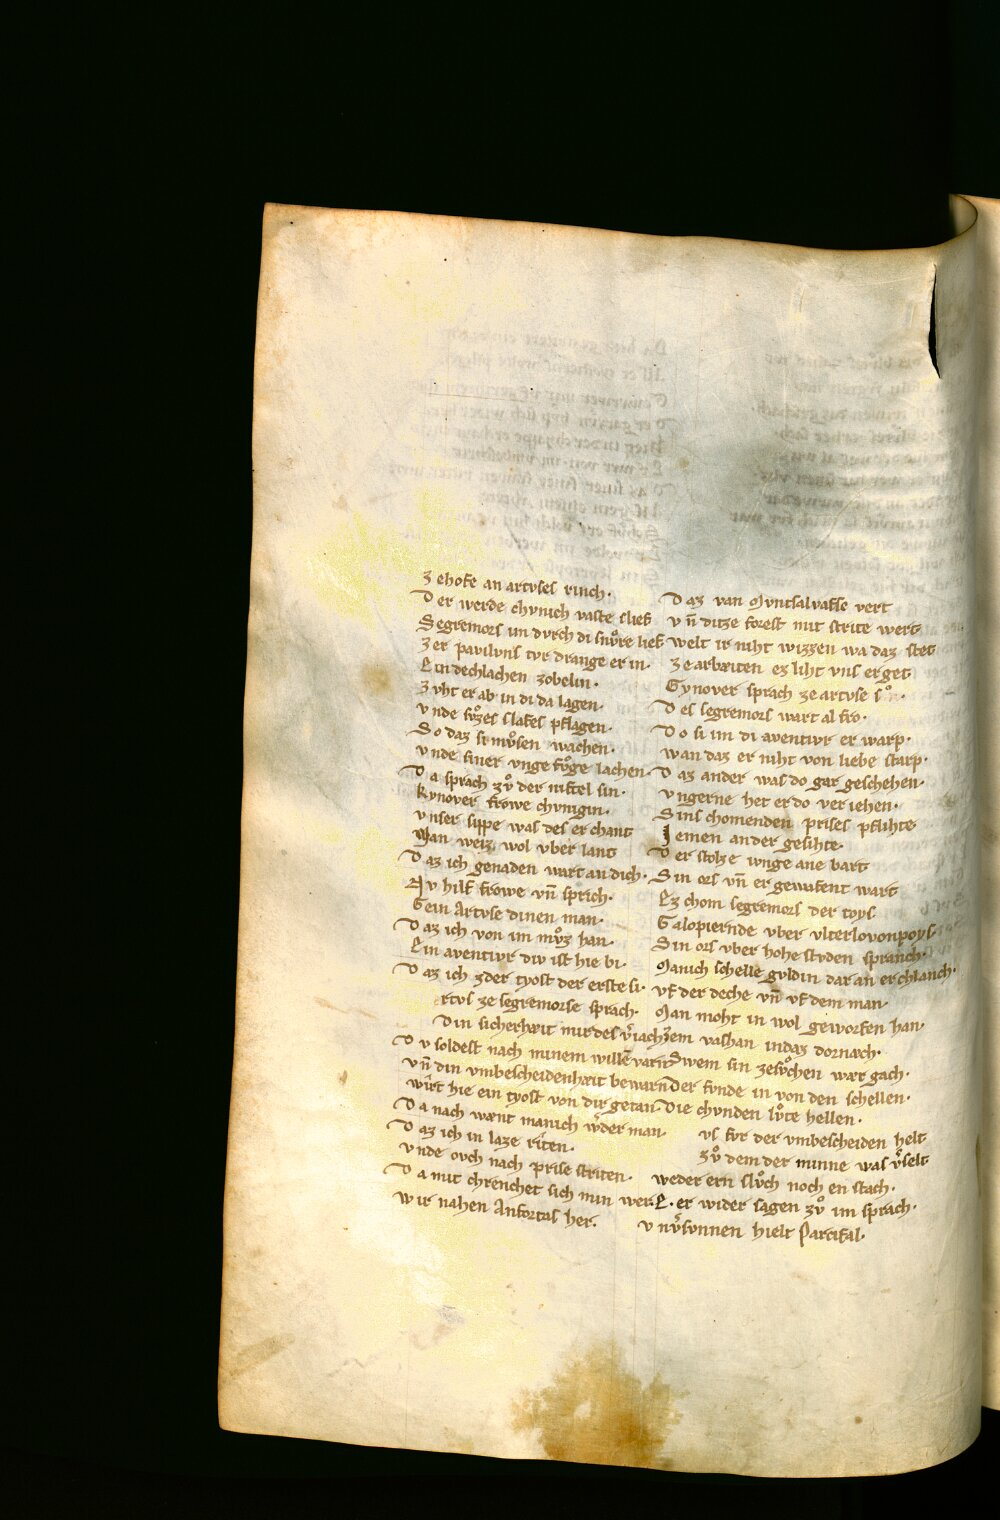 Z ehofe an artvses rinch·
D er werde chvnich vaste slief
Segremors im dvrch di snv̊re lief
Z er pavilvns tvr drange er in·
E in dechlachen zobelin·
Z vht er ab in di da lagen·
v nde sv̊zes slafes pflagen·
S o daz si mv̊sen wachen·
v nde siner vnge fv̊ge lachen·
D a sprach zv̊ der niftel sin·
kynover frowe chvnigin·
v nser sippe was des er chant
Man weiz wol vber lant
D az ich genaden wart an dich·
N v hilf frowe vn̄ sprich·
G ein Artvse dinen man·
D az ich von im mv̊z han·
E in aventivr div ist hie bi·
D az ich zder tyost der erste si·
rtvs ze segremorse sprach·
Din sicherhæit mir des v̓iach
D v soldest nach minem willē varn
v n̄ din vmbescheidenhæit bewarn
wirt hie ein tyost von dir getan
D a nach wænt manich w̓der man·
D az ich in laze riten·
v nde ovch nach prise striten·
D a mit chrenchet sich min wer
W ir nahen Anfortas her·
D az van Mvntsalvatsse vert
v n̄ ditze forest mit strite wert
welt ir niht wizzen wa daz stet
Z e arbæiten ez liht vns erget
Gynover sprach ze artvse so·
D es segremors wart al fro·
D o si im di aventivr er warp·
wan daz er niht von liebe starp·
D az ander was do gar geschehen·
v ngerne het er do ver iehen·
S ins chomenden prises pflihte
I emen ander gesihte·
D er stolze ivnge ane bart
S in ors vn̄ er gewafent wart
Ez chom segremors der roys
G alopiernde vber vlterlovonpoys·
S in ors vber hohe stvden spranch·
Manich schelle gvldin dar an er chlanch·
vf der deche vn̄ vf dem man·
Man moht in wol geworfen han·
zem vashan indaz dornach·
Swem sin zesv̊chen wær gach·
Der fvnde in von den schellen·
Die chvnden lv̊te hellen·
vs fvr der vmbescheiden helt
zv̊ dem der minne was v̓selt
weder ern slv̊ch noch en stach·
E· er wider sagen zv̊ im sprach·
v nv̓svnnen hielt Parcifal·